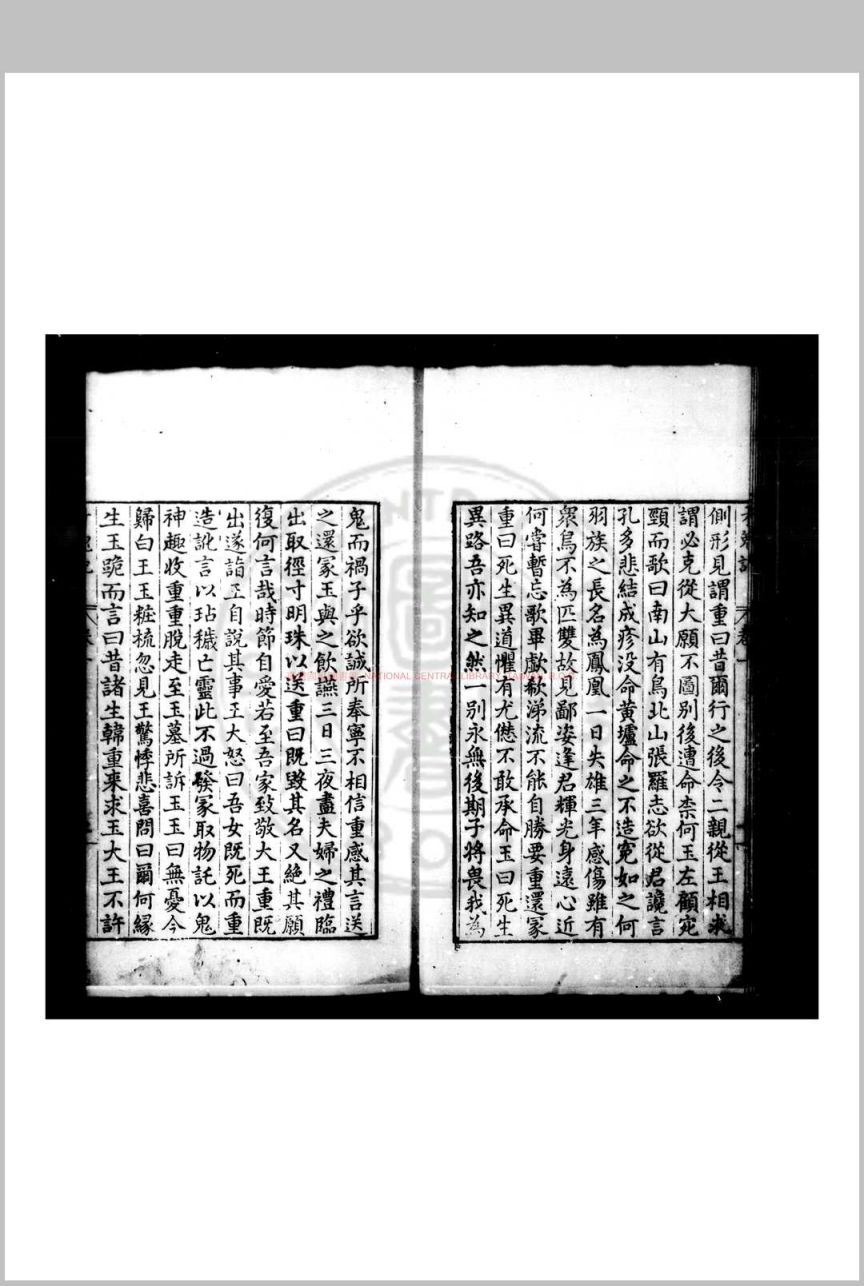 側形見謂重曰昔爾行之後令二親從王相求
謂必克從大願不圖別後遭命柰何玉左顧宛
頸而歌曰南山有鳥北山張羅志欲從君讒言
孔多悲結成疹没命黄壚命之不造寃如之何
羽族之長名為鳳凰一日失雄三年感傷雖有
衆鳥不為匹雙故見鄙姿逢君輝光身遠心近
何甞暫忘歌畢歔欷涕流不能自勝要重還冢
重曰死生異道懼有尤愆不敢承命玉曰死生
異路吾亦知之然一別永無後期子將畏我為
鬼而禍子乎欲誠所奉寧不相信重感其言送
之還冢玉與之飲讌三日三夜盡夫婦之禮臨
出取徑寸明珠以送重曰既毀其名又絶其願
復何言哉時節自愛若至吾家致敬大王重既
出遂詣王自說其事王大怒曰吾女既死而重
造訛言以玷穢亡靈此不過發冢取物託以鬼
神趣收重重脫走至玉墓所訴玉玉曰無憂今
歸白王玉粧梳忽見王驚悸悲喜問曰爾何縁
生玉跪而言曰昔諸生韓重來求玉大王不許
NATIONAL CENTRAL LIBRARY